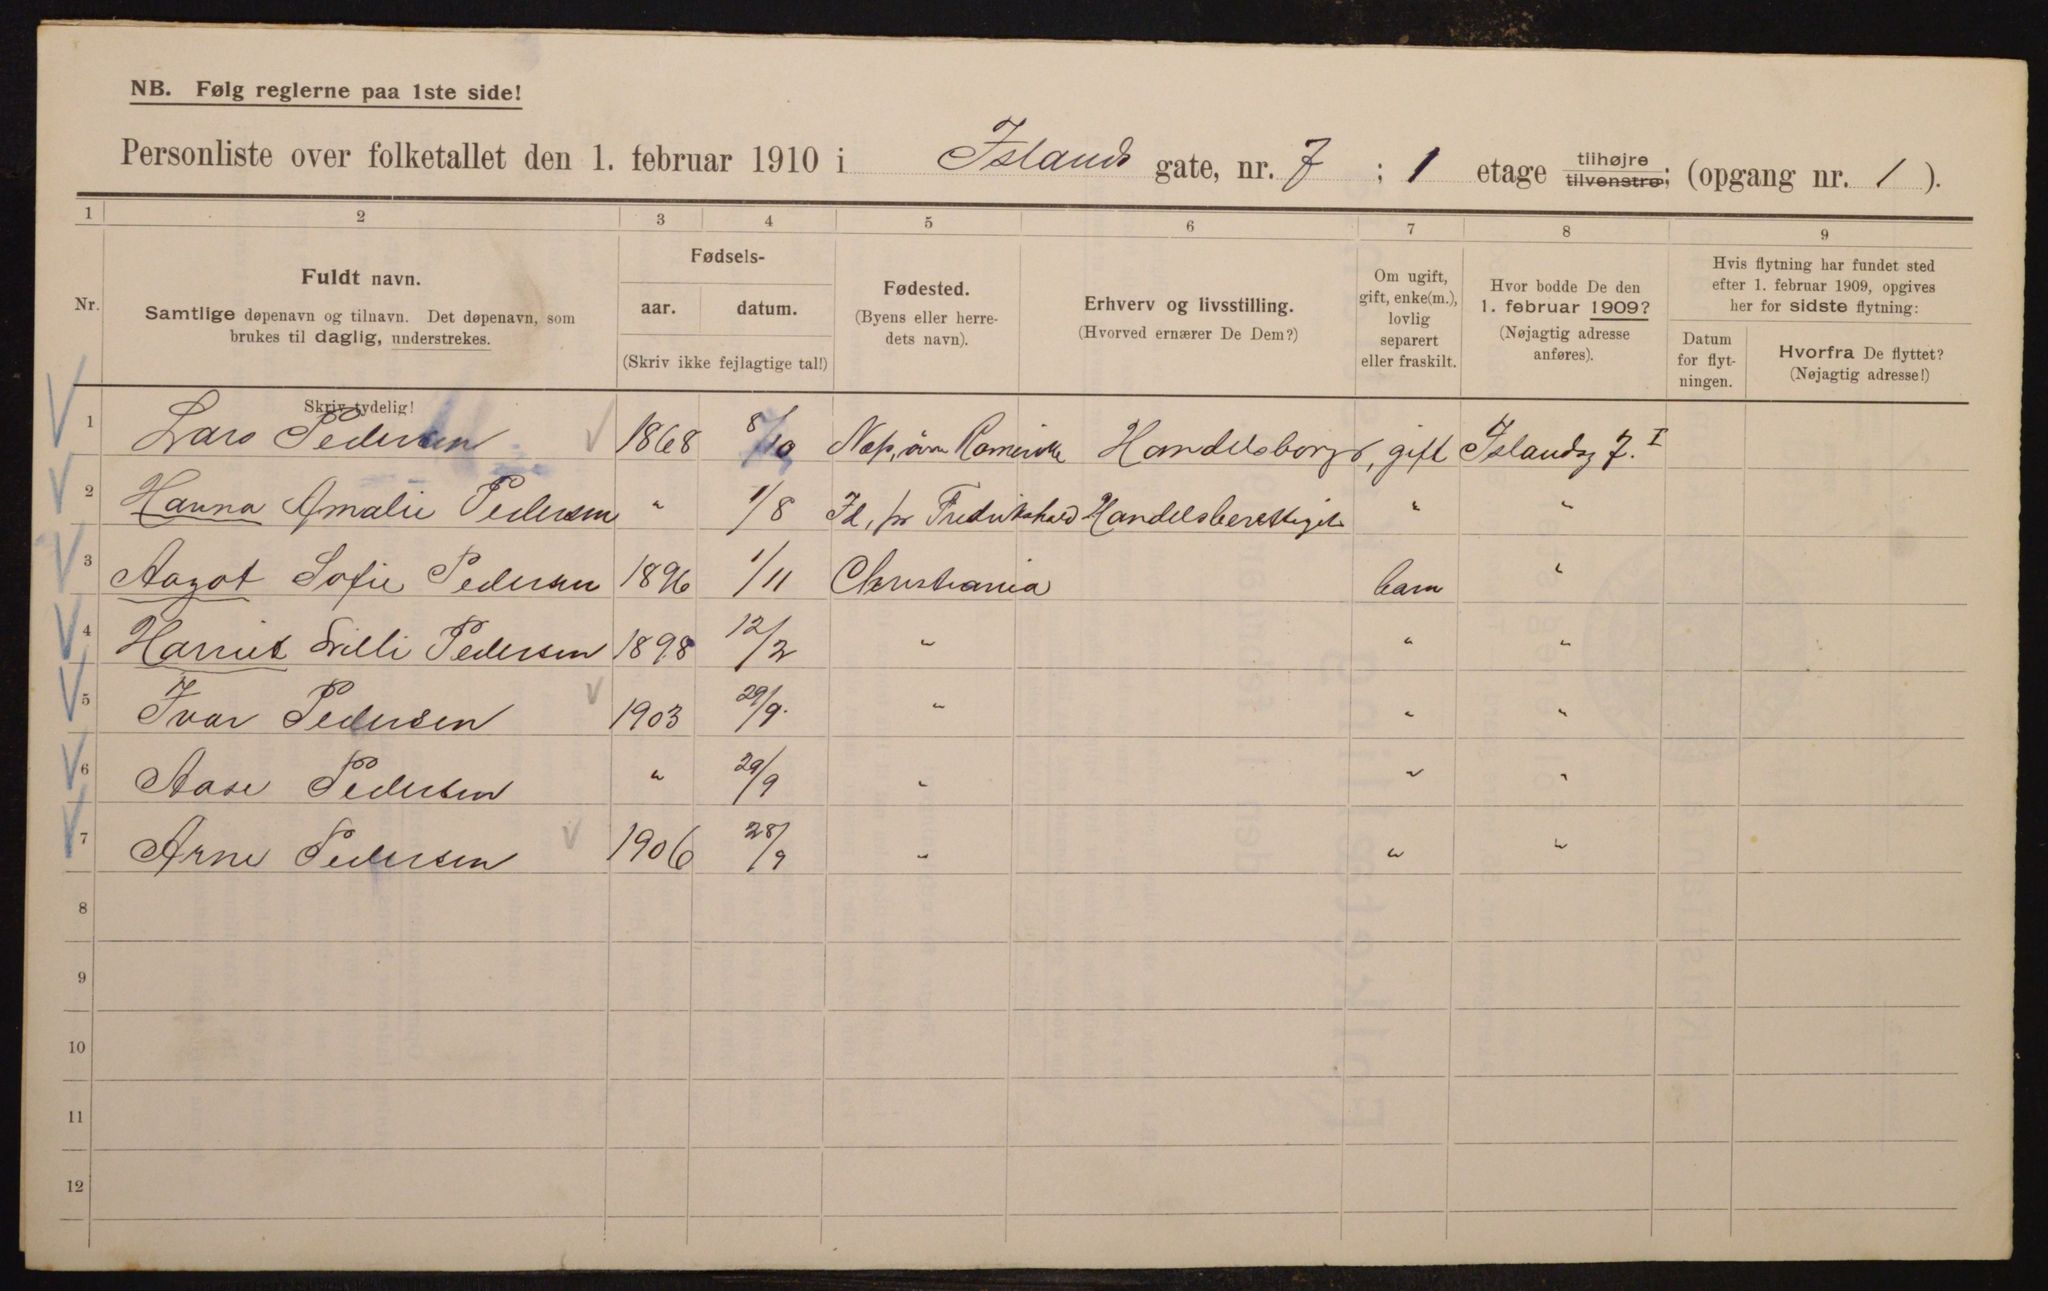 NB. Følg reglerne paa 1ste side!
Personliste over folketallet den 1. februar 1910 i Islands gate, nr. 7 ; 1 etage tilhøjre tilvenstre; (opgang nr. 1 ).
1 2 3 4 5 6 7 8 9
Nr.
Fuldt navn.
Samtlige døpenavn og tilnavn. Det døpenavn, som
brukes til daglig, understrekes.
Skriv tydelig!
Fødsels-
aar. datum.
(Skriv ikke fejlagtige tal!)
Fødested.
(Byens eller herre-
dets navn).
Erhverv og livsstilling.
(Hvorved ernærer De Dem?)
Om ugift,
gift, enke(m.),
lovlig
separert
eller fraskilt.
Hvor bodde De den
1. februar 1909?
(Nøjagtig adresse
anføres).
Hvis flytning har fundet sted
efter 1. februar 1909, opgives
her for sidste flytning:
Datum
for flyt-
ningen.
Hvorfra De flyttet?
(Nøjagtig adresse!)
1 Lars Pedersen 1868 8/10 Næs, Handelsborgr, gift Islandsg 7. I
2 Hanna Amalie Pedersen " 1/8 Id, pr Fredrikshald Handelsberettiget " "
3 Aagot Sofie Pedersen 1896 1/11 Christiania barn "
4 Harriet Lilli Pedersen 1898 12/2 " " "
5 Ivar Pedersen 1903 29/9. " " "
6 Aase Pedersen " 29/9 " " "
7 Arne Pedersen 1906 28/9 " " "
8
9
10
11
12